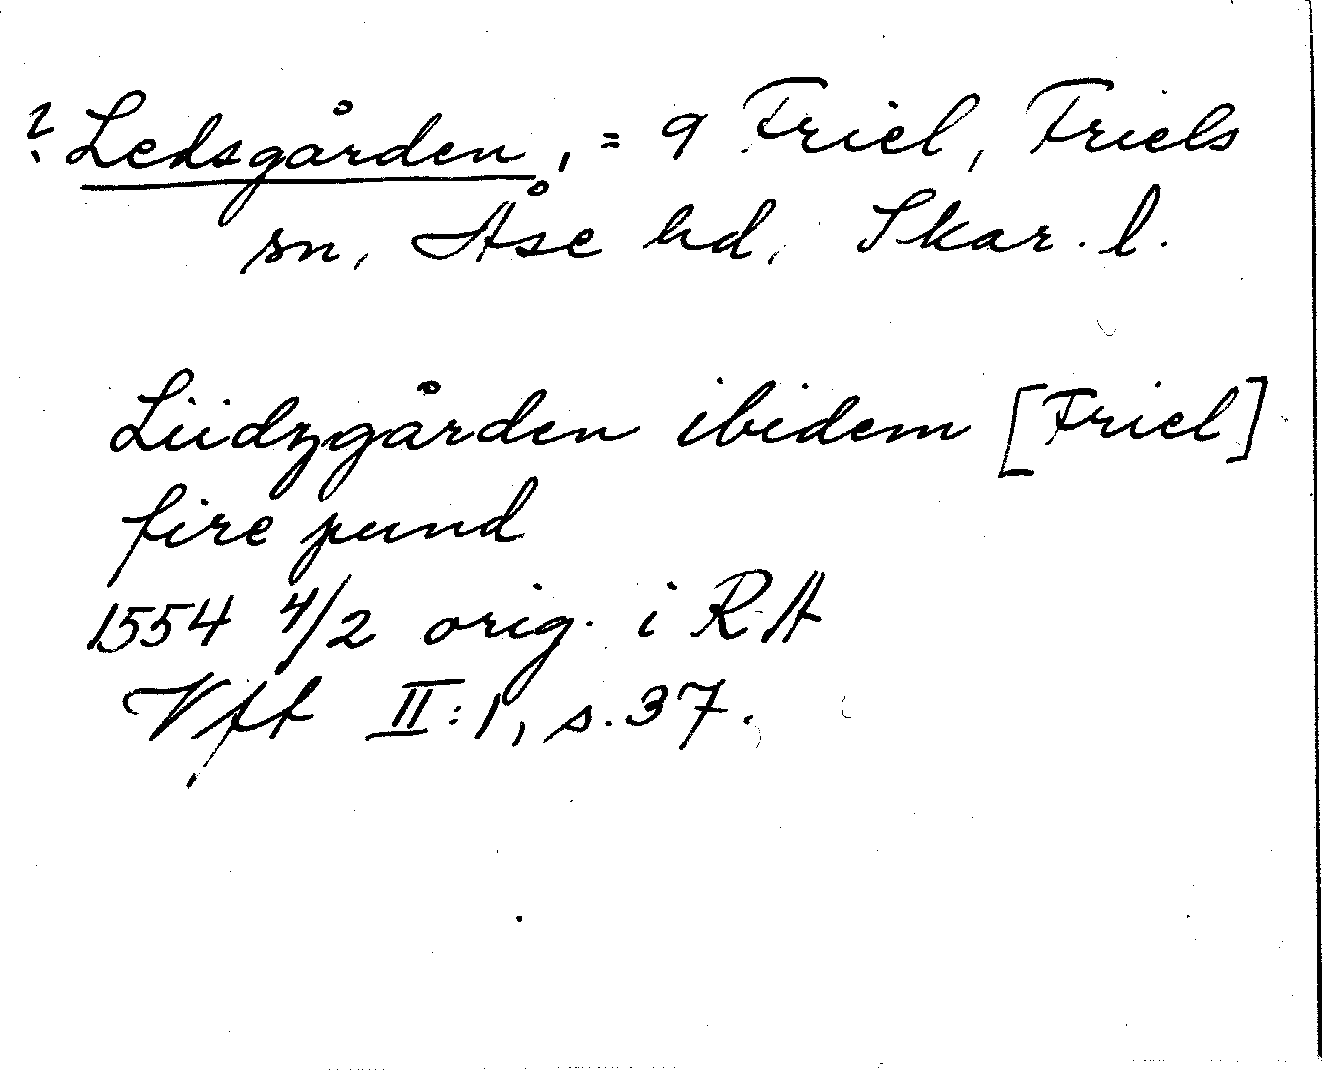 ? Ledsgården, = 9 Friel, Friels
sn, Åse hd, Skar. l.
Liidzgården ibidem [Friel]
fire pund
1554 4/2 orig. i RA
Vft II:1, s. 37.